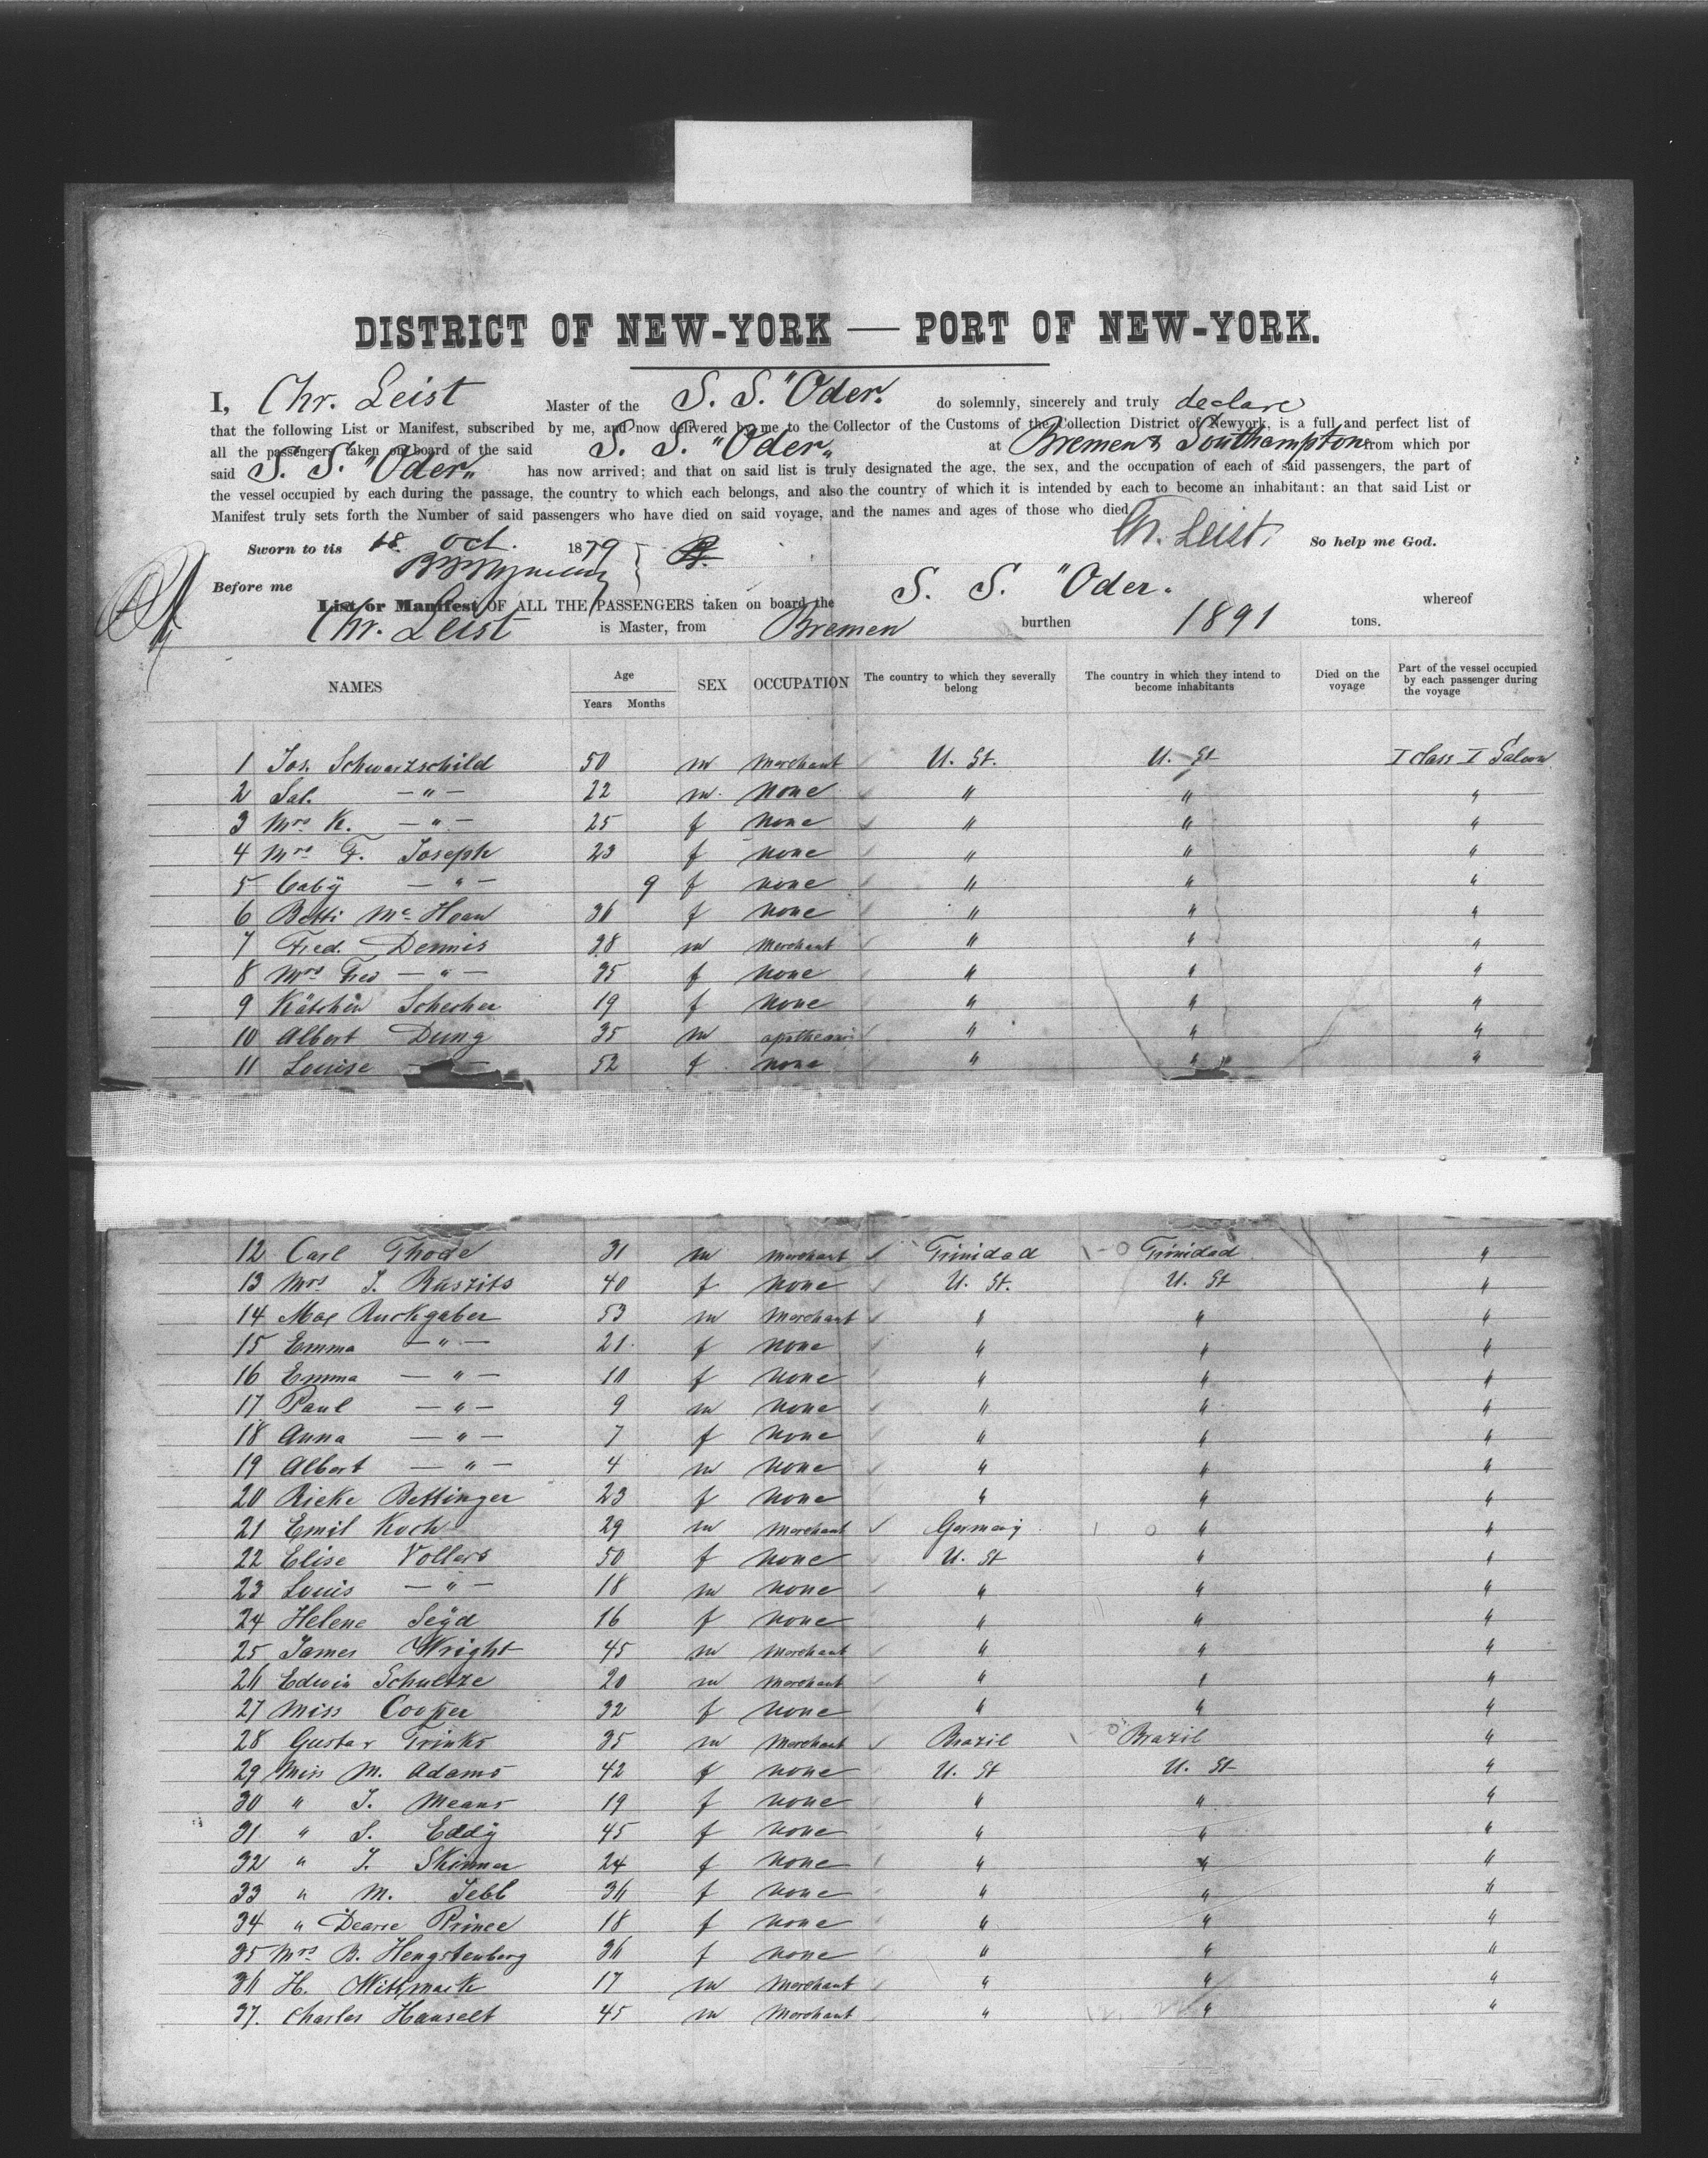 DISTRICT OF NEW-YORK — PORT OF NEW-YORK.
I, Chr. Leist Master of the S. S. "Oder" do solemnly, sincerely and truly declare
that the following List or Manifest, subscribed by me, and now delivered by me to the Collector of the Customs of the Collection District of Newyork, is a full and perfect list of
all the passengers taken on board of the said S. S. "Oder" at Bremen & Southampton from which por
said S. S. "Oder" has now arrived; and that on said list is truly designated the age, the sex, and the occupation of each of said passengers, the part of
the vessel occupied by each during the passage, the country to which each belongs, and also the country of which it is intended by each to become an inhabitant: an that said List or
Manifest truly sets forth the Number of said passengers who have died on said voyage, and the names and ages of those who died
Chr. Leist. So help me God.
Sworn to tis 18. Oct. 1879
Before me
List or Manifest OF ALL THE PASSENGERS taken on board the S. S. "Oder. whereof
Chr. Leist is Master, from Bremen burthen 1891 tons.
NAMES Age Years Months SEX OCCUPATION The country to which they severally belong The country in which they intend to become inhabitants Died on the voyage Part of the vessel occupied by each passenger during the voyage
1 Jos. Schwarzschild 50 m Merchant U. St. U. St I class I Saloon
2 Sal. — " — 22 m. None " " "
3 Mrs K. — " — 25 f None " " "
4 Mrs F. Joseph 23 f None " " "
5 Baby — " — 9 f None " " "
6 Betti Mc Hoan 36 f None " " "
7 Fred. Dennis 38 m Merchant " " "
8 Mrs Fred — " — 35 f None " " "
9 Kätchen 19 f None " " "
10 Albert Dung 35 m " " "
11 Louise 52 f none " " "
12 Carl Thode 31 m Merchant Trinidad Trinidad "
13 Mrs J. Ruszits 40 f None U. St. U. St "
14 Max Ruckgaber 53 m Merchant " " "
15 Emma — " — 21 f None " " "
16 Emma — " — 10 f None " " "
17 Paul — " — 9 m None " " "
18 Anna — " — 7 f None " " "
19 Albert — " — 4 m None " " "
20 Rieke Bettinger 23 f None " " "
21 Emil Koch 29 m Merchant Germany " "
22 Elise Vollers 50 f None U. St " "
23 Louis — " — 18 m None " " "
24 Helene Seÿd 16 f None " " "
25 James Wright 45 m Merchant " " "
26 Edwin Schultze 20 m Merchant " " "
27 Miss Cooper 32 f None " " "
28 Gustav Trinks 35 m Merchant Brazil Brazil "
29 Miss M. Adams 42 f None U. St U. St "
30 " J. Means 19 f None " " "
31 " S. Eddy 45 f None " " "
32 " J. Skinner 24 f None " " "
33 " M. Jebb 36 f None " " "
34 " Dearie Prince 18 f None " " "
35 Mrs B. Hengstenberg 36 f none " " "
36 H. Wittmack 17 m Merchant " " "
37. Charles Hauselt 45 m Merchant " " "